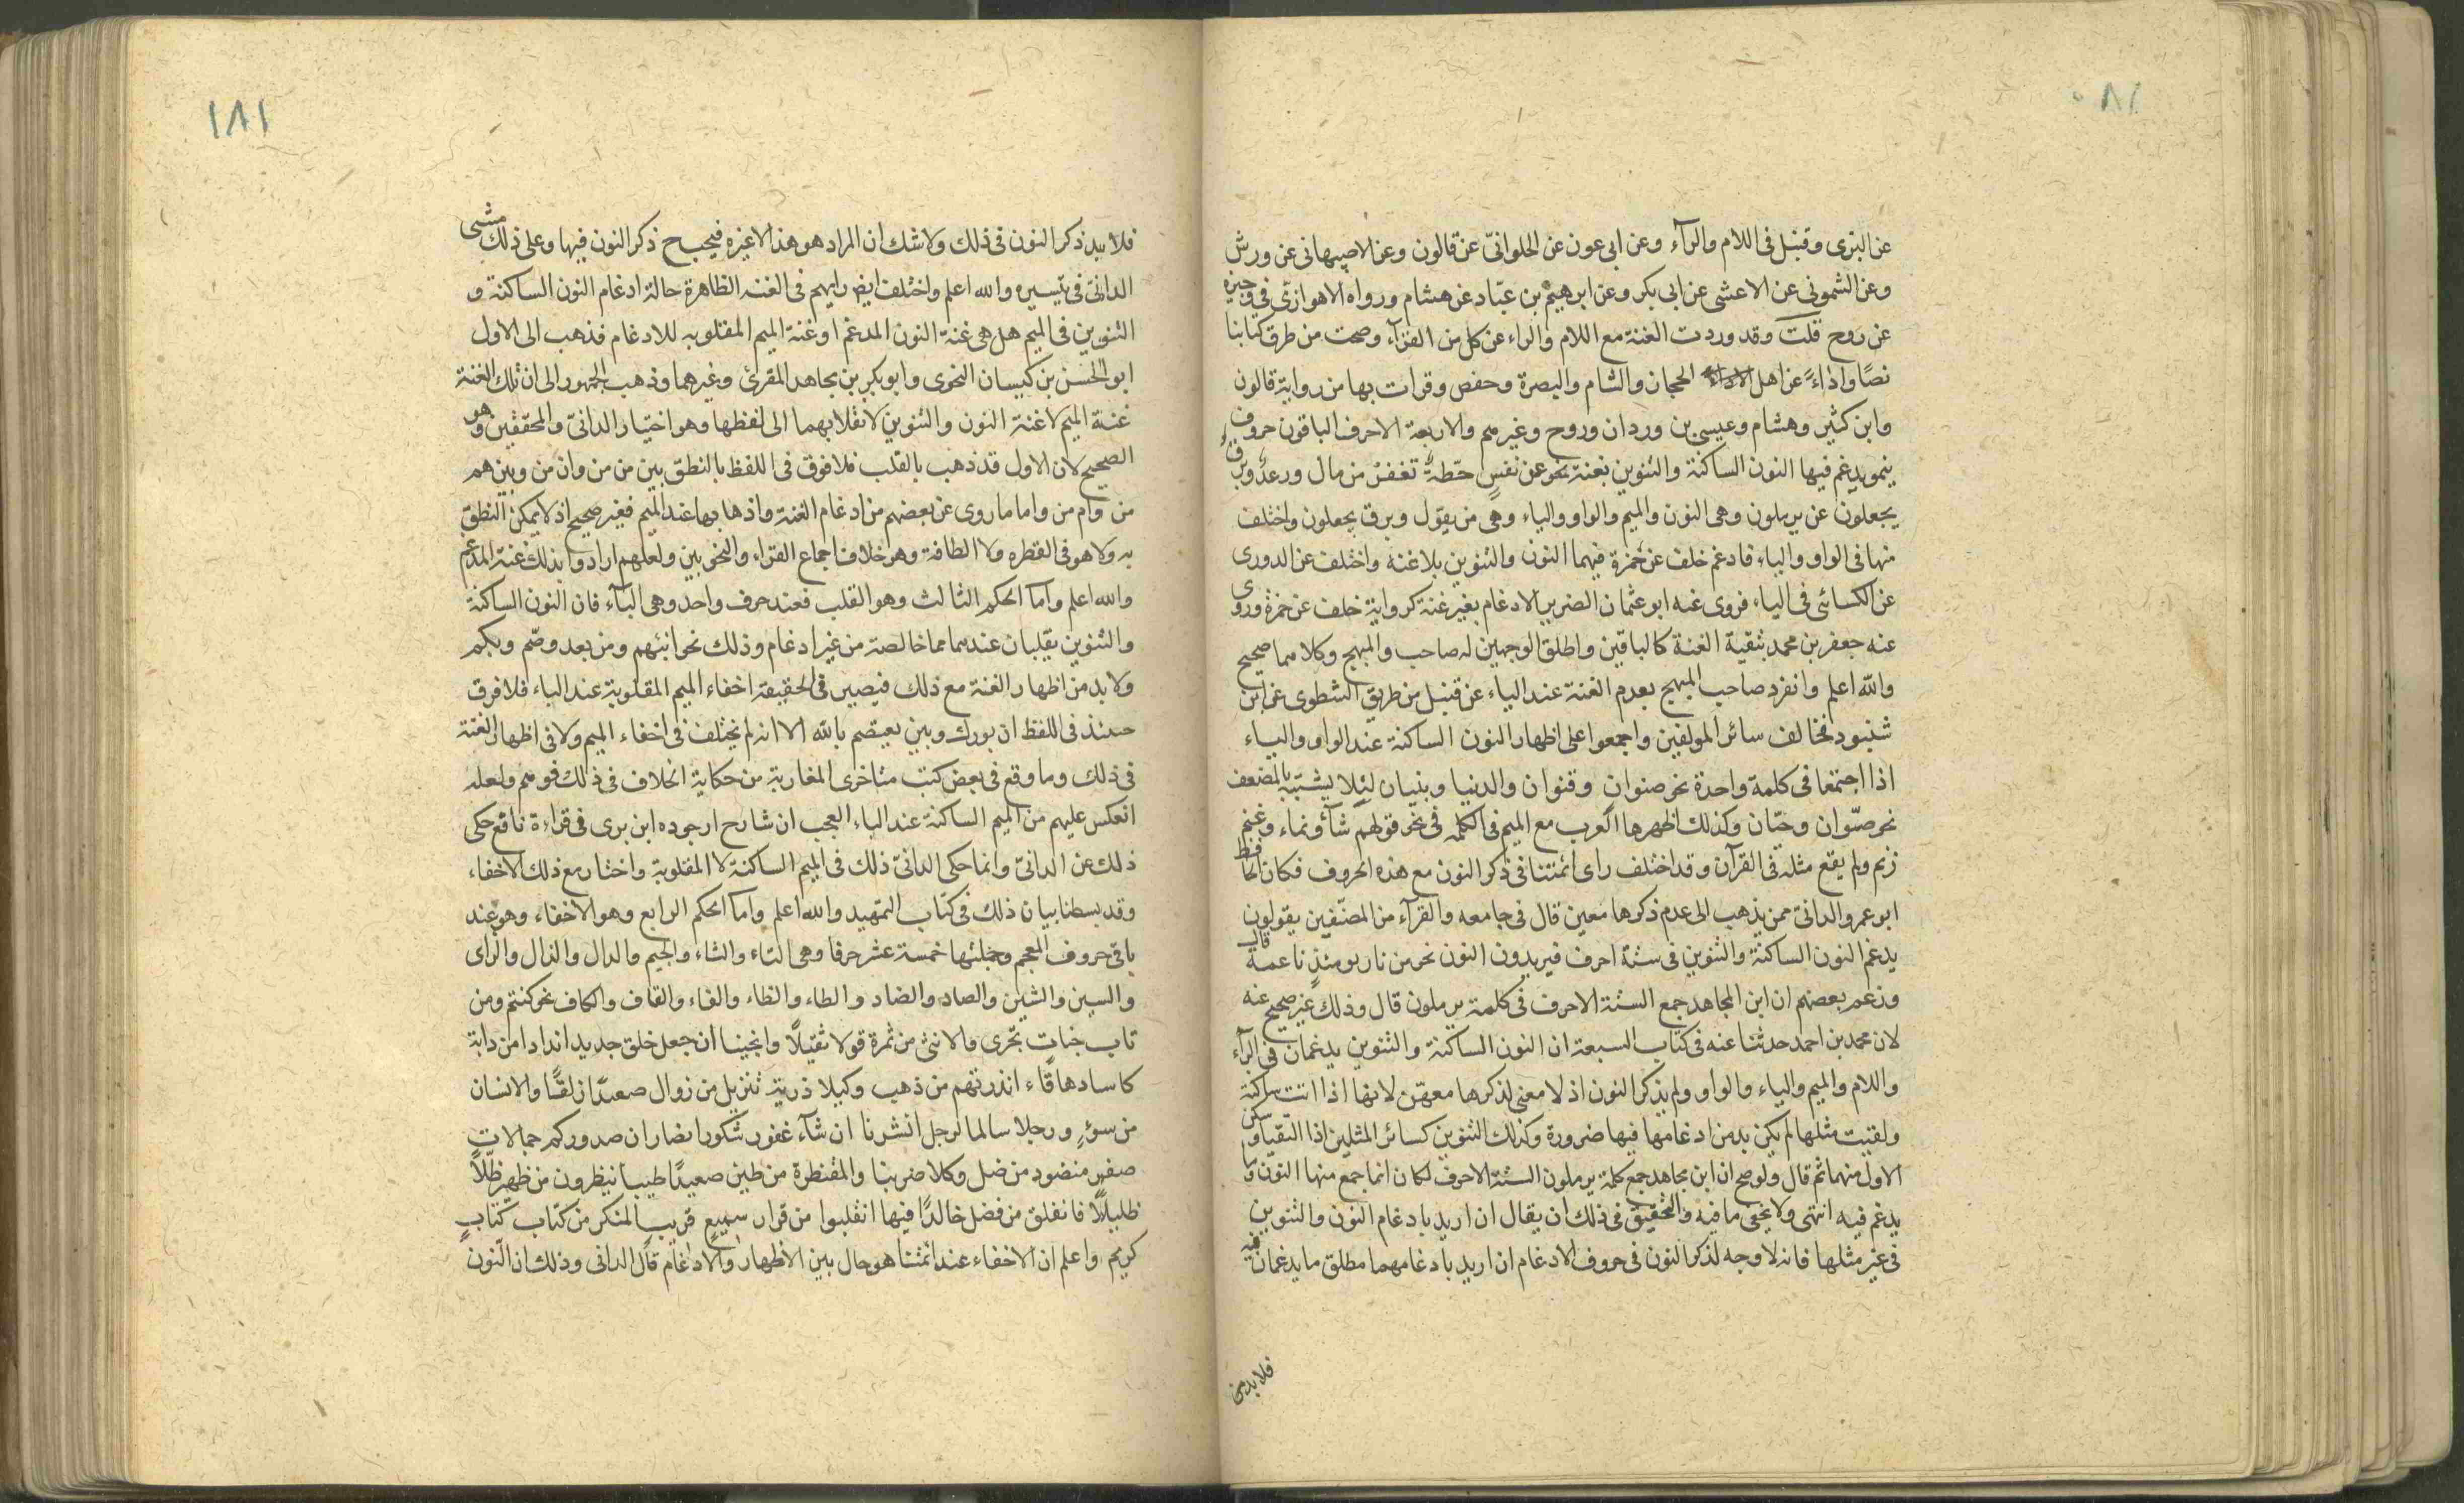 ١٨٠
عن البزى وقنبل فى اللام والرآء وعن ابى عون عن الحلوانىّ عن قالون وعن الاصبهانى عن ورش
وعن الشمونى عن الاعشى عن ابى بكر وعن ابرهيم بن عبّاد عن هشام ورواه الاهوازىّ فى وجيزه
عن روح قلت وقد وردت الغنة مع اللام والراء عن كل من القرآء وصحت من طرق كتابنا
نصًا واداءً عن اهل الحجاز والشام والبصرة وحفص وقرات بها من رواية قالون
وابن كثير وهشام وعيسى بن وردان وروح وغيرهم والاربعة الاحرف الباقون حروف
ينمو يدغم فيها النون الساكنة والتنوين بغنة نحو عن نفسٍ حّطةٌ تغفر من مال ورعدٌ وبرقٌ
يجعلون عن يرملون وهى النون والميم والواو والياء وهى من يقول وبرق يجعلون واختلف
منها فى الواو والياء فادغم خلف عن حمزة فيهما النون والتنوين بلاغنه واختلف عن الدورى
عن الكسائى فى الياء فروى عنه ابو عثمان الضرير الادغام بغير غنة كرواية خلف عن حمزة وروى
عنه جعفر بن محمد بتقية الغنة كالباقين واطلق الوجهين له صاحب والمبهج وكلاهما صحيح
والله اعلم وانفرد صاحب المبهج بعدم الغنة عند الياء عن قنبل من طريق الشطوى عن ابن
شنبود فخالف سائر المولفين واجمعوا على اظهار النون الساكنة عند الواو والياء
اذا اجتمعا فى كلمة واحدة نحو صنوان وقنوان والدنيا وبنيان لئلا يشتبه بالمضعف
نحو صّوان وحيّان وكذلك اظهرها العرب مع الميم فى الكلمه فى نحو قولهم شآء ونماء وغنم
زنم ولم يقع مثله فى القرآن وقد اختلف راى ائمتنا فى ذكر النون مع هذه الحروف فكان الحافظ
ابو عمرو الدانىّ ممن يذهب الى عدم ذكرها معين قال فى جامعه والقرآء من المصنّفين يقولون
يدغم النون الساكنة والتنوين فى ستة احرف فيزيدون النون نحو من نار يومئذٍ ناعمة قال
وزعم بعضهم ان ابن المجاهد جمع الستة الاحرف فى كلمة يرملون قال وذلك غير صحيح عنه
لان محمد بن احمد حدثنا عنه فى كتاب السبعة ان النون الساكنة والتنوين يدغمان فى الرآء
واللام والميم والياء والواو ولم يذكر النون اذ لا معنى لذكرها معهنّ لانها اذا اتت ساكنة
ولقيت مثلها لم يكن بد من ادغامها فيها ضرورة وكذلك التنوين كسائر المثلين اذا التقيا وسكن
الاول منهما ثم قال ولو صح ان ابن مجاهد جمع كلمة يرملون الستة الاحرف لكان انما جمع منها النون وما
يدغم فيه انتهى ولا يخفى ما فيه والتحقيق فى ذلك ان يقال ان اريد بادغام النون والتنوين
فى غير مثلها فانه لا وجه لذكر النون فى حروف الادغام ان اريد بادغامهما مطلق ما يدغمان فيه
فلا بد من
١٨١
فلا بد ذكر النون فى ذلك ولا شك ان المراد هو هذا لاغيره فيجب ح ذكر النون فيها وعلى ذلك مشى
الدانىّ فى تيسيره والله اعلم واختلف ايض رايهم فى الغنه الظاهرة حالة ادغام النون الساكنة و
التنوين فى الميم هل هى غنة النون المدغم او غنة الميم المقلوبه للادغام فذهب الى الاول
ابو الحسن بن كيسان النحوى وابو بكر بن مجاهد المقرئ وغيرهما وذهب الجمهور الى ان تلك الغنة
غنة الميم لا غنة النون والتنوين لانقلابهما الى لفظها وهو اختيار الدانىّ والمحققين وهو
الصحيح لان الاول قد ذهب بالقلب فلا فرق فى اللفظ بالنطق بين من من وان من وبين هم
من وام من واما ما روى عن بعضهم من ادغام الغنة واذهابها عند الميم فغير صحيح اذ لا يمكن النطق
به ولا هو فى الفطره ولا الطاقة وهو خلاف اجماع القراء والنحويين ولعلهم ارادوا بذلك غنة المدغم
والله اعلم واما الحكم الثالث وهو القلب فعند حرف واحد وهى البآء فان النون الساكنة
والتنوين يقلبان عندها مما خالصة من غير ادغام وذلك نحو انبئهم ومن بعد وصّم وبكم
ولا بد من اظهار الغنة مع ذلك فيصير فى الحقيقة اخفاء الميم المقلوبة عند الباء فلا فرق
حينئذ فى اللفظ ان بورك وبين يعتصم بالله الا انه لم يختلف فى اخفاء الميم ولا فى اظهار الغنة
فى ذلك وما وقع فى بعض كتب متاخرى المغاربة من حكاية الخلاف فى ذلك فوهم ولعله
انعكس عليهم من الميم الساكنة عند الباء العجب ان شارح ارجوده ابن برى فى قراءة نافع حكى
ذلك عن الدانىّ وانما حكى الدانىّ ذلك فى الميم الساكنة لا المقلوبة واختار مع ذلك الاخفاء
وقد بسطنا بيان ذلك فى كتاب التمهيد والله اعلم واما الحكم الرابع وهو الاخفاء وهو عند
باقى حروف المعجم وجملتها خمسة عشر حرفا وهى التاء والثاء والجيم والدال والذال والزاى
والسين والشين والصاد والضاد والطاء والظاء والفاء والقاف والكاف نحو كنتم ومن
تاب جنات تجرى والانثى من ثمرة قولا ثقيلاً وانجينا ان جعل خلق جديد اندادا من دابة
كاسا دهاقاً ءانذرتهم من ذهب وكيلا ذرية تنزيل من زوال صعيدًا زلقًا والانسان
من سوءٍ ورجلا سالما لرجل انشرنا ان شآء غفور شكور انصار ان صدوركم جمالات
صفر منضود من ضل وكلا ضربنا والمقنطرة من طين صعيدًا طيبا ينظرون من ظهير ظلّاً
ظليلاً فانفلق من فضل خالدًا فيها انقلبوا من قرار سميع قريب المنكر من كتاب كتاب
كريم واعلم ان الاخفاء عند ائمتنا هو حال بين الاظهار والادغام قال الدانى وذلك ان النون